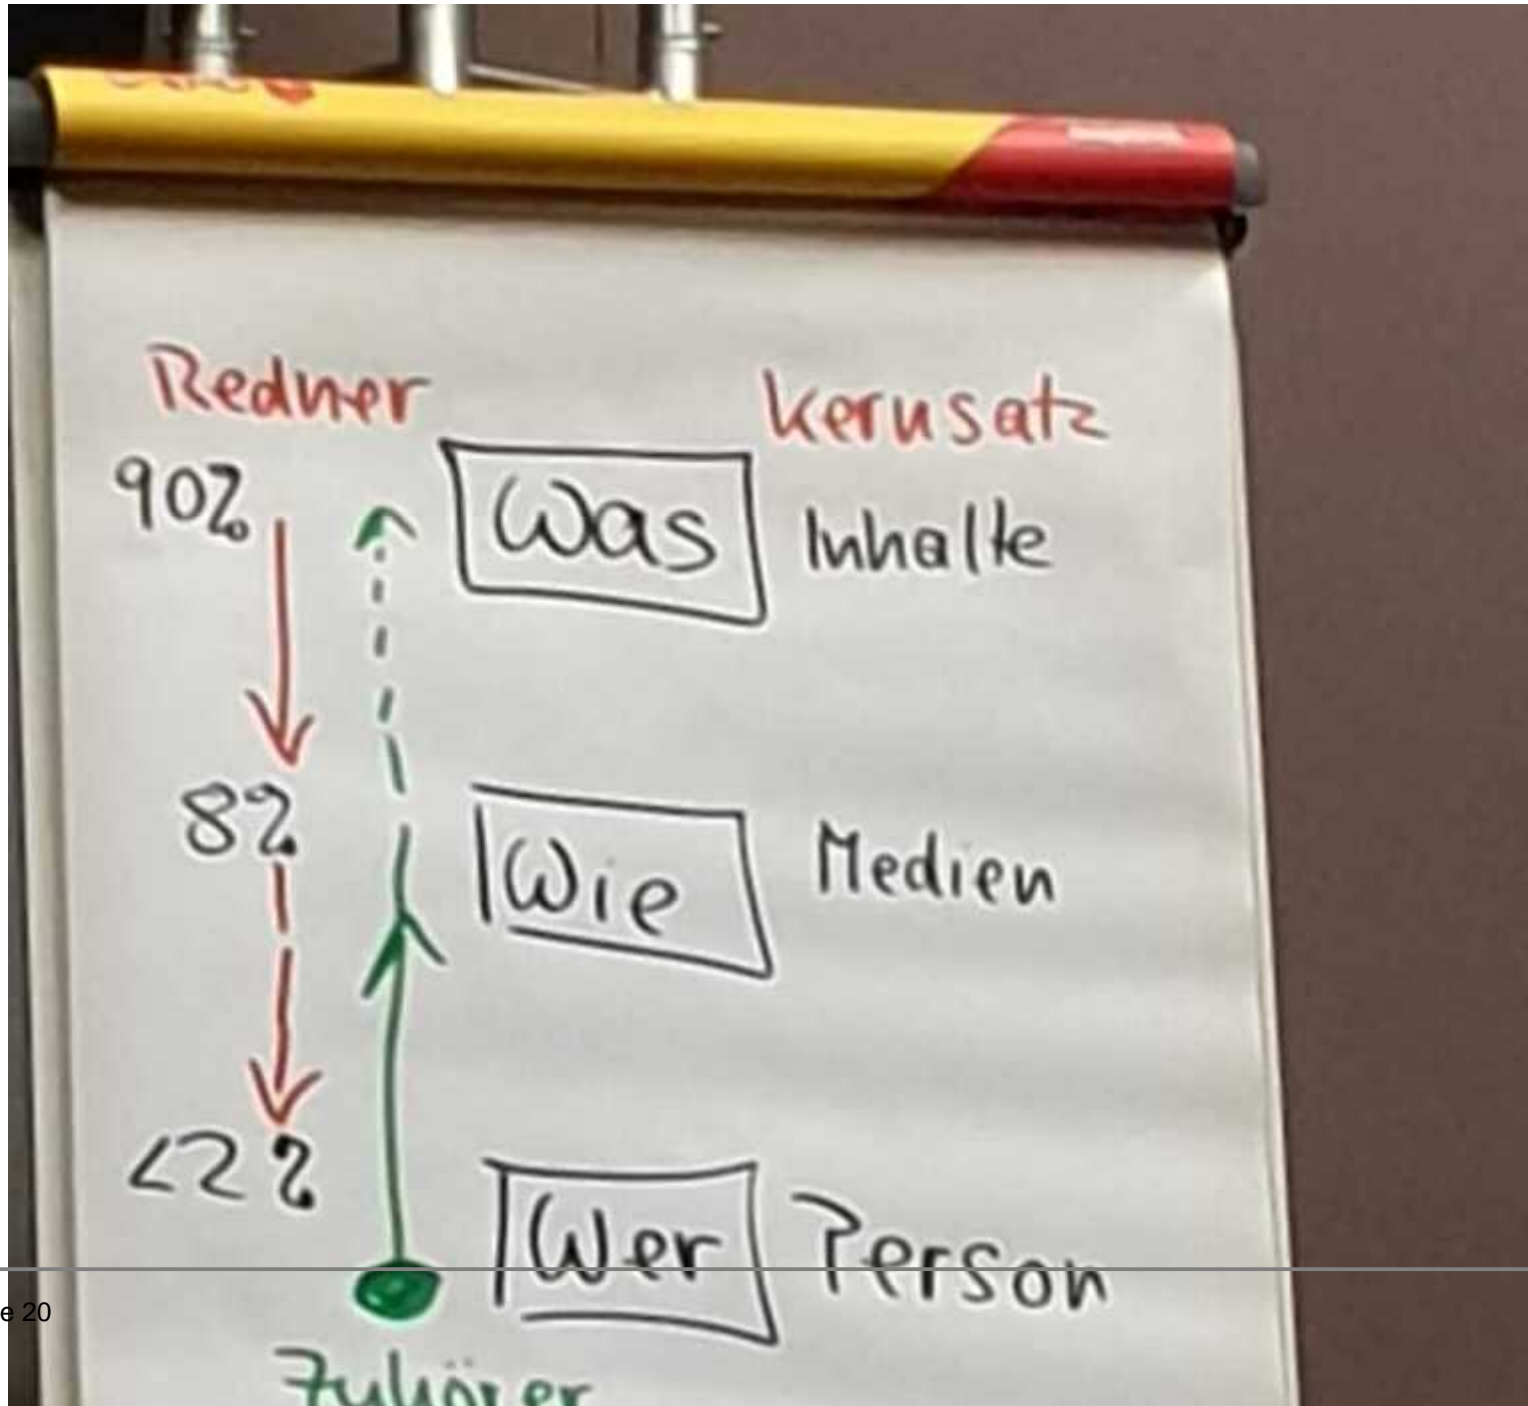 Redner Kernsatz
90%
Was Inhalte
8%
Wie Medien
<2%
Wer Person
e 20
Zuhörer